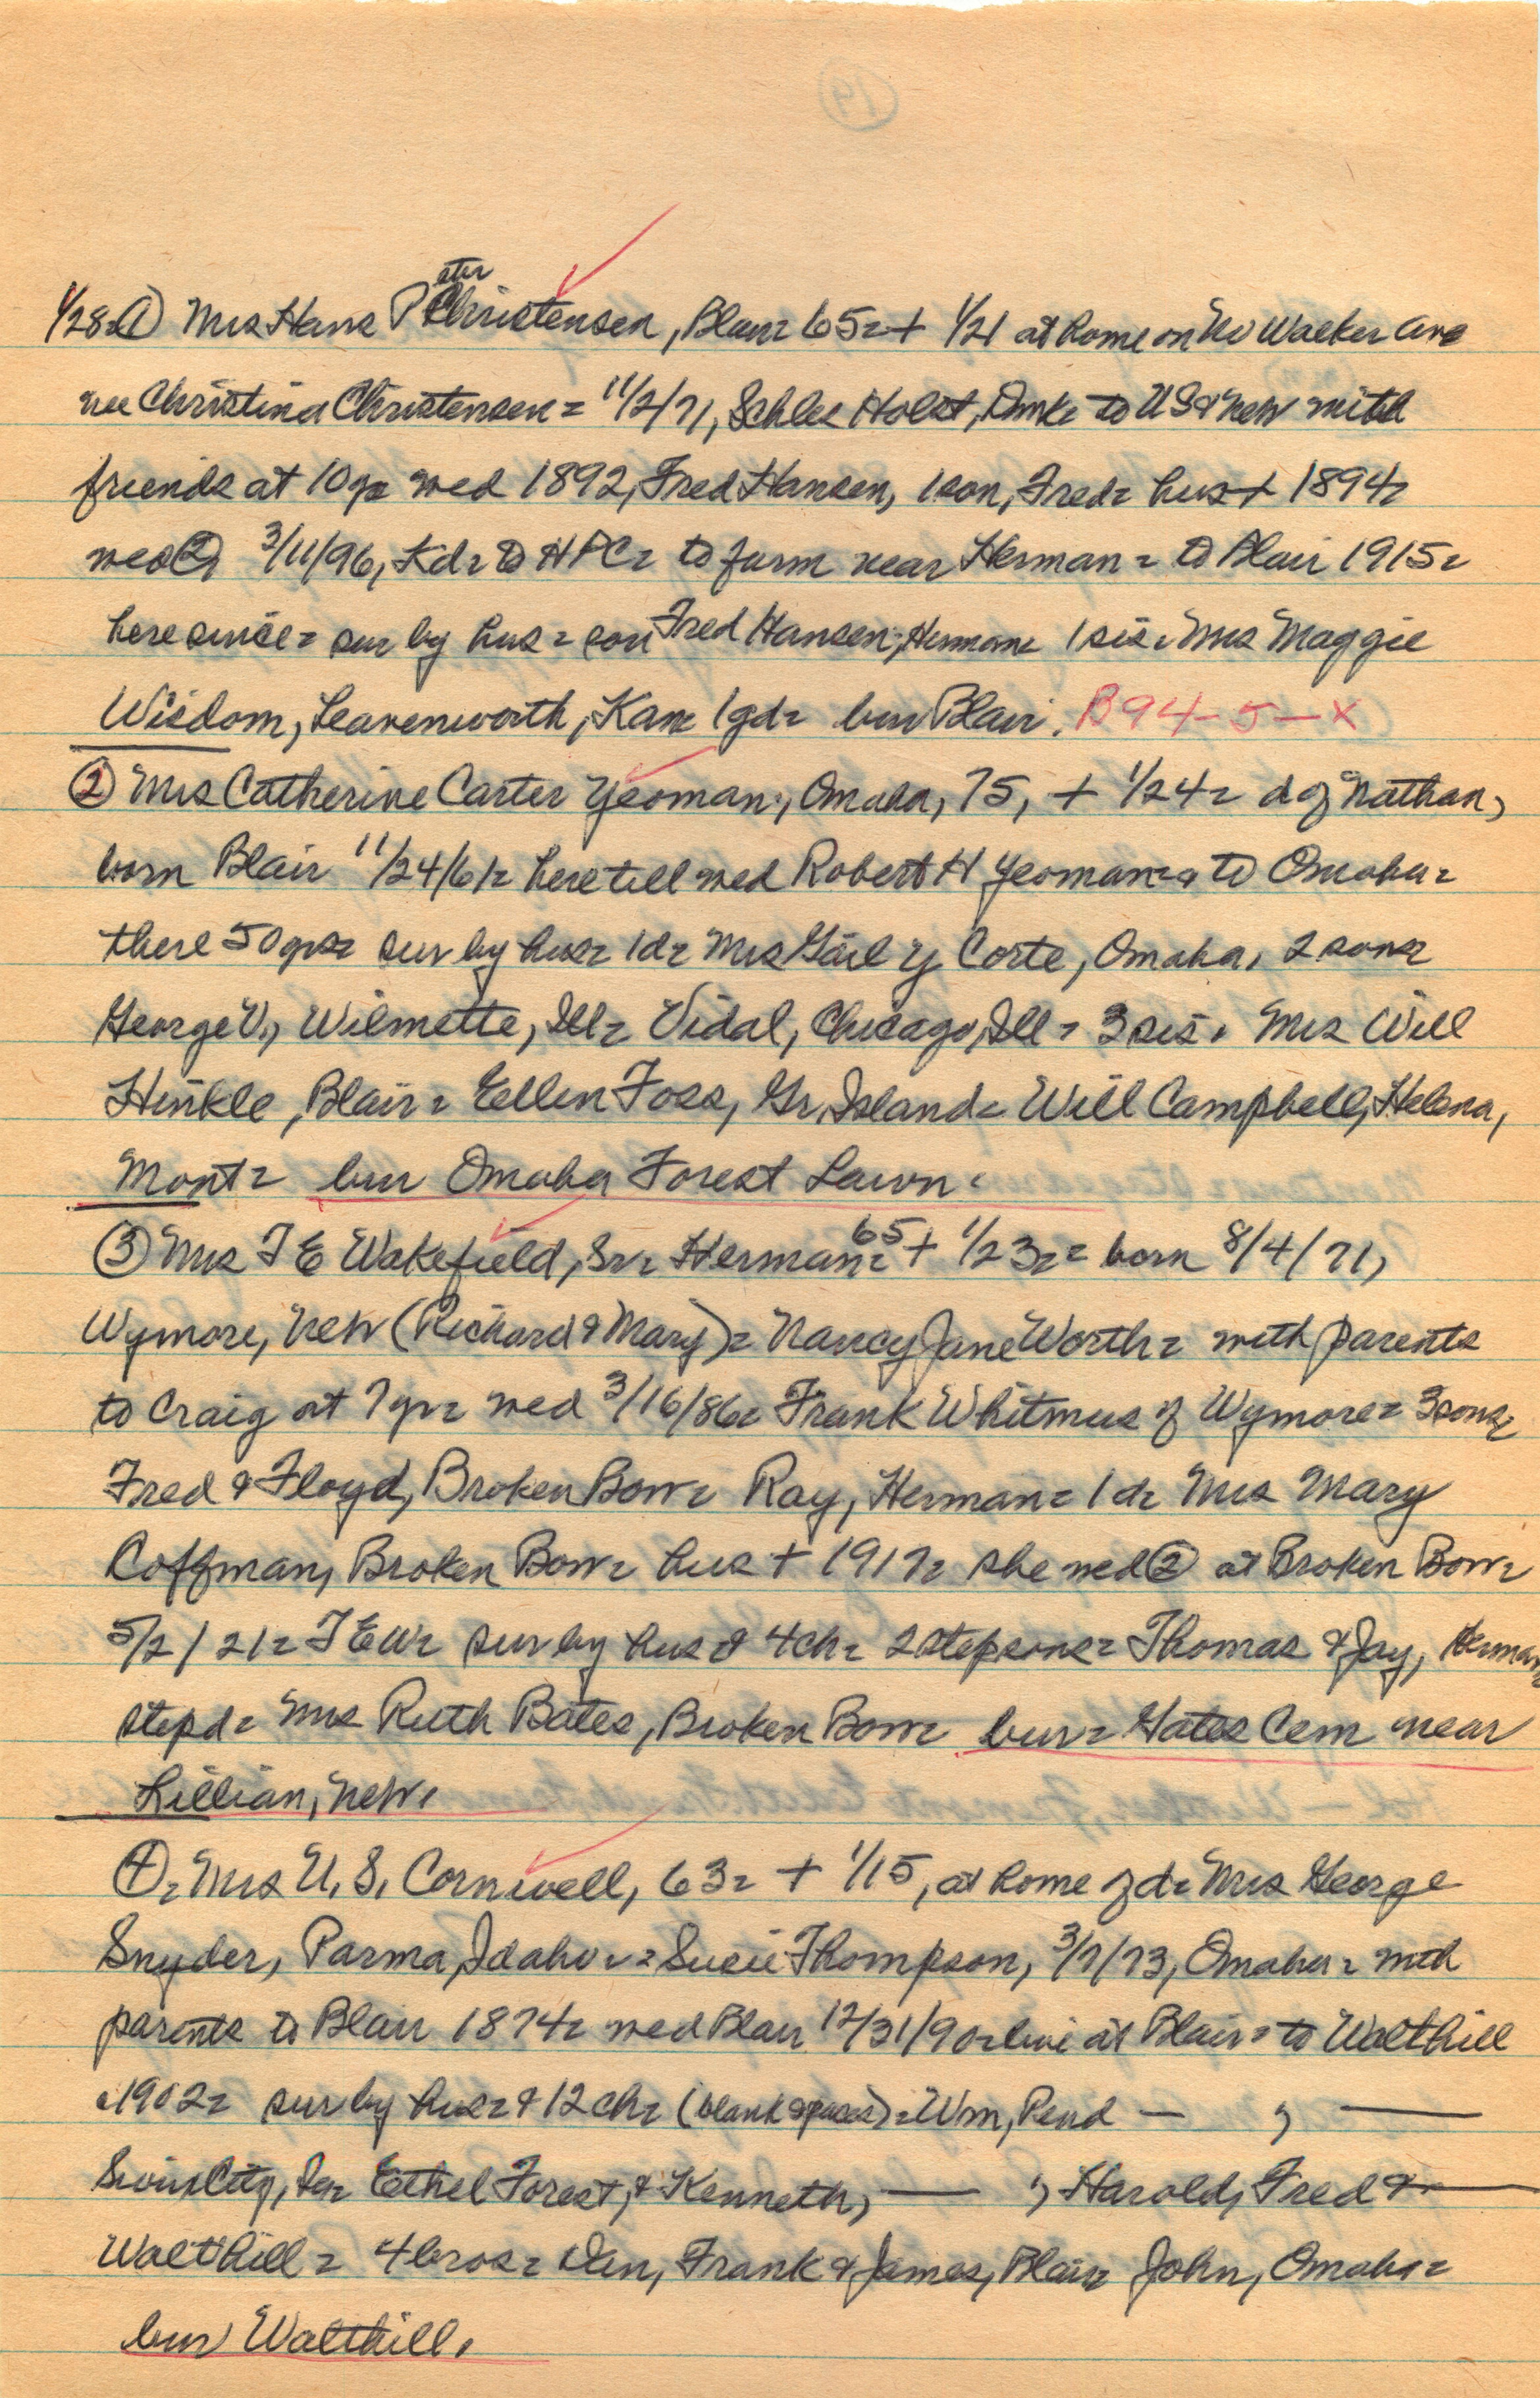 1/28 ① Mrs Hans Peter Christensen, Blair = 65 = + 1/21 at home on No Walker Ave
nee Christina Christensen = 11/2/71, Schles Holst, Dmk = to US & Neb with
friends at 10 yr = wed 1892, Fred Hansen, 1 son, Fred = hus + 1894 =
wed ② 3/11/96, Kd = to HPC = to farm near Herman = to Blair 1915 =
here since = sur by hus = son Fred Hansen, Herman = 1 sis = Mrs Maggie
Wisdom, Leavenworth, Kan = 1 gd = bur Blair. B94-5-X
② Mrs Catherine Carter Yeoman, Omaha, 75, + 1/24 = d of Nathan,
born Blair 11/24/61 = here till wed Robert H Yeoman = & to Omaha =
there 50 yrs = sur by hus = 1 d = Mrs Gail Y Corte, Omaha, 2 sons =
George V., Wilmette, Ill = Vidal, Chicago, Ill = 3 sis, Mrs Will
Hinkle, Blair = Ellen Foss, Gr. Island = Will Campbell, Helena,
Mont = bur Omaha Forest Lawn.
③ Mrs T E Wakefield, Sr = Herman = 65 + 1/23 = = born 8/4/71,
Wymore, Neb (Richard & Mary) = Nancy Jane Worth = with parents
to Craig at 7 yr = wed 3/16/86 = Frank Whitmus of Wymore = 3 sons =
Fred & Floyd, Broken Bow = Ray, Herman = 1 d = Mrs Mary
Coffman, Broken Bow = hus + 1917 = she wed ② at Broken Bow =
5/2/21 = T E W = sur by hus & 4 ch = 2 stepsons = Thomas & Jay, Herman =
stepd = Mrs Ruth Bates, Broken Bow = bur = Gates Cem near
Lillian, Neb.
④ = Mrs U. S. Cornwell, 63 = + 1/15, at home of d = Mrs George
Snyder, Parma, Idaho = = Susie Thompson, 3/7/73, Omaha = with
parents to Blair 1874 = wed Blair 12/31/90 = live at Blair = to Walthill
1902 = sur by hus = & 12 ch = (blank spaces) = Wm, Pend — , —
Sioux City, Ia = Ethel Forest, & Kenneth, — , Harold, Fred & —
Walthill = 4 bros = Dan, Frank & James, Blair = John, Omaha =
bur Walthill.